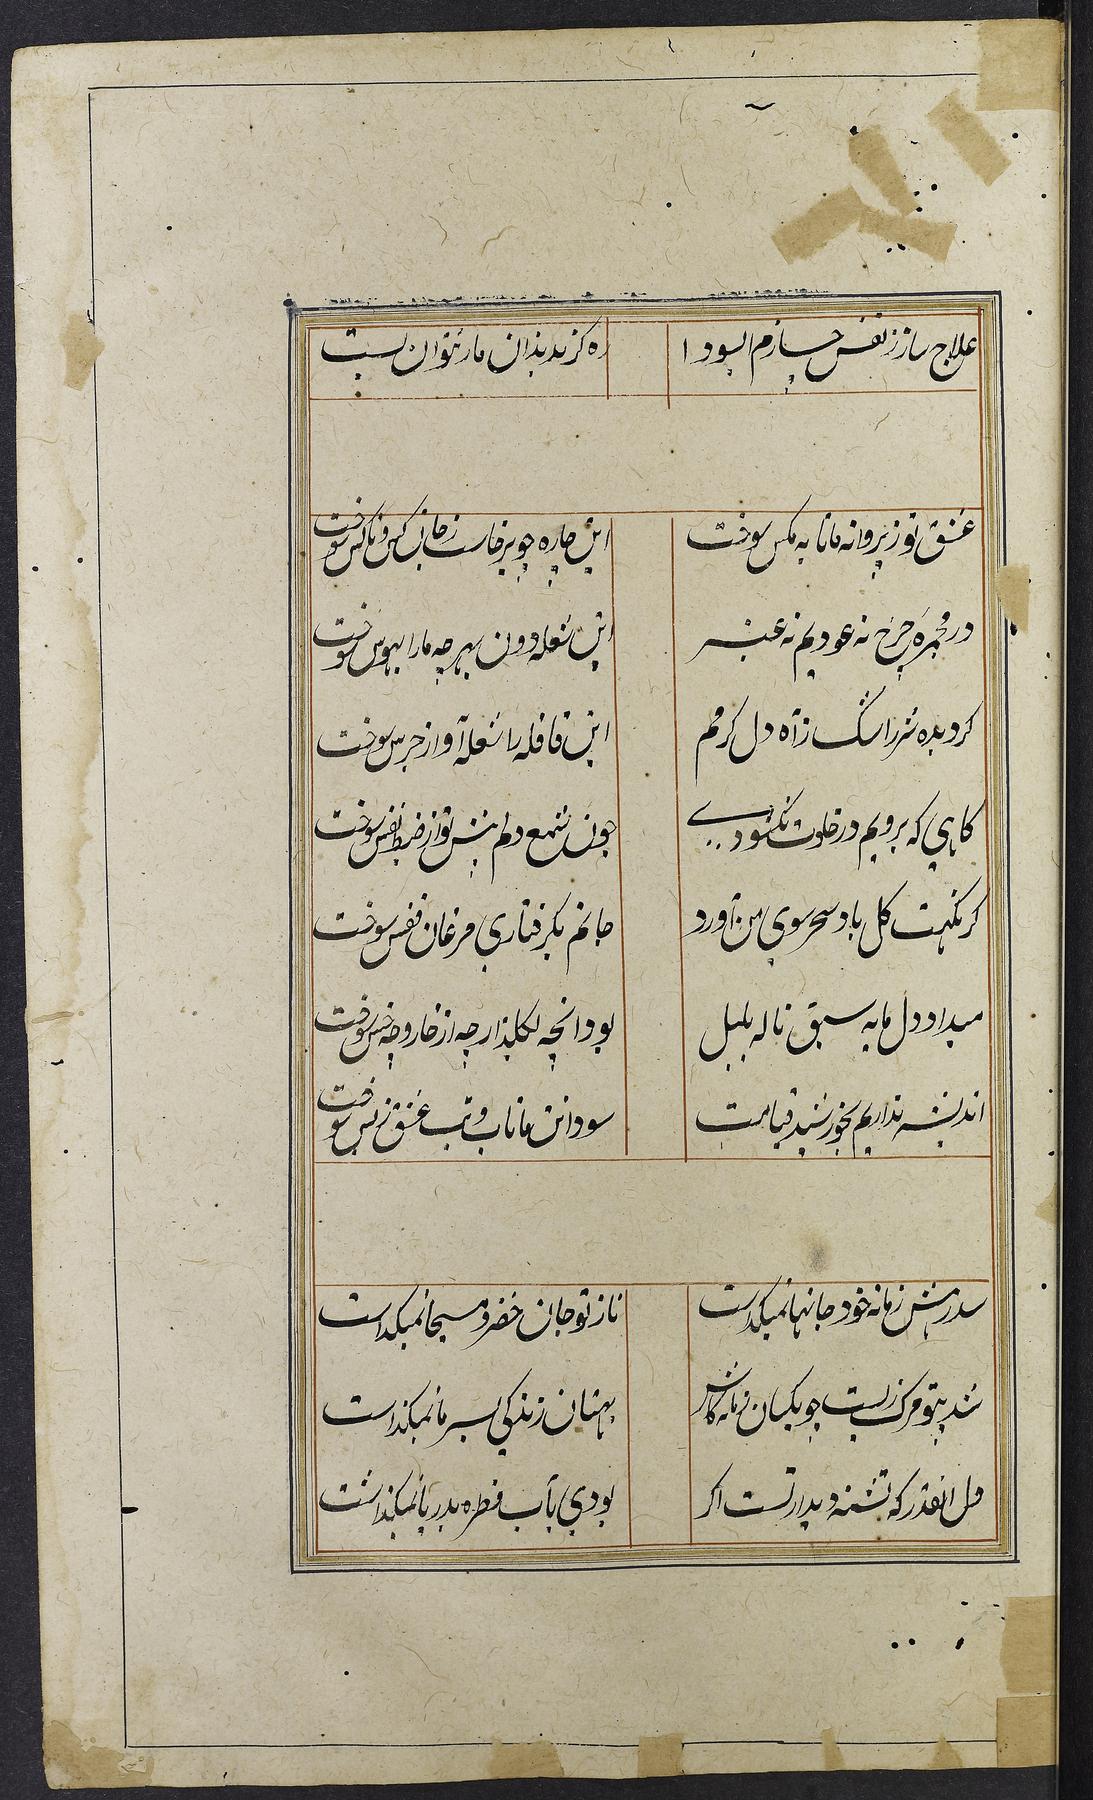 علاج ساز ز نفس چسازم اسود ا
ره کزند بدان مار نتوان بست
عشق تو ز پروانه ما تا به مکس سوخت
این چاره چو برخاست ز جان کس و ناکس سوخت
در مجمره چرخ نه عودیم نه عنبر
این شعله دون بهر چه ما را بهوس سوخت
کردیده شرر اشک ز آه دل کرمم
این قافله را شعله آواز جرس سوخت
کاهی که برویم در خلوت نکشودی
چون شمع دلم پیش تو از ضبط نفس سوخت
کر نکهت کل باد سحر سوی من آورد
جانم بکرفتاری مرغان قفس سوخت
میداد دل ما به سبق ناله بلبل
بود انچه بکلزار چه از خار و چه خس سوخت
اندیشه نداریم بخورشید قیامت
سودا تن ما تاب و تب عشق ز بس سوخت
زمانه خود جانها نمیکداشت
ناز تو جان خضر و مسیحا نمیکداشت
شد بیتو مرک زیست چو یکسان زمانه کاش
بهتان زندکی بسر ما نمیکذاشت
دل انقدر که تشنه دیدار تست اکر
بودی بآب قطره بدریا نمیکذاشت